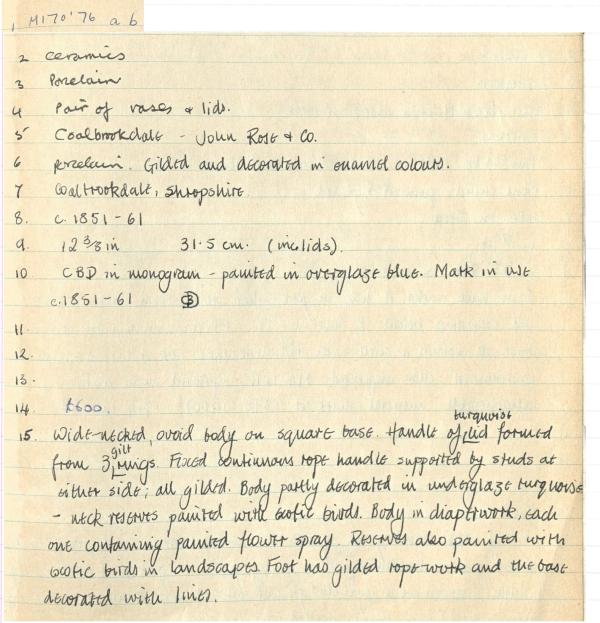 1 M170'76 a b
2 ceramics
3 Porcelain
4 Pair of vases & lids.
5 Coalbrookdale - John Rose & Co.
6 porcelain. Gilded and decorated in enamel colours.
7 Coalbrookdale, Shropshire
8. c. 1851-61
9. 12 3/8 in 31.5 cm. (inc lids).
10 CBD in monogram - painted in overglaze blue. Mark in use
c. 1851-61 CBD
11.
12.
13.
14 £600.
turquoise
15. Wide-necked, ovoid body on square base. Handle of lid formed
gilt
from 3 rings. Fixed continuous rope handle supported by studs at
either side; all gilded. Body partly decorated in underglaze turquoise
- neck reserves painted with exotic birds. Body in diaperwork, each
one containing painted flower spray. Reserves also painted with
exotic birds in landscapes. Foot has gilded rope work and the base
decorated with lines.